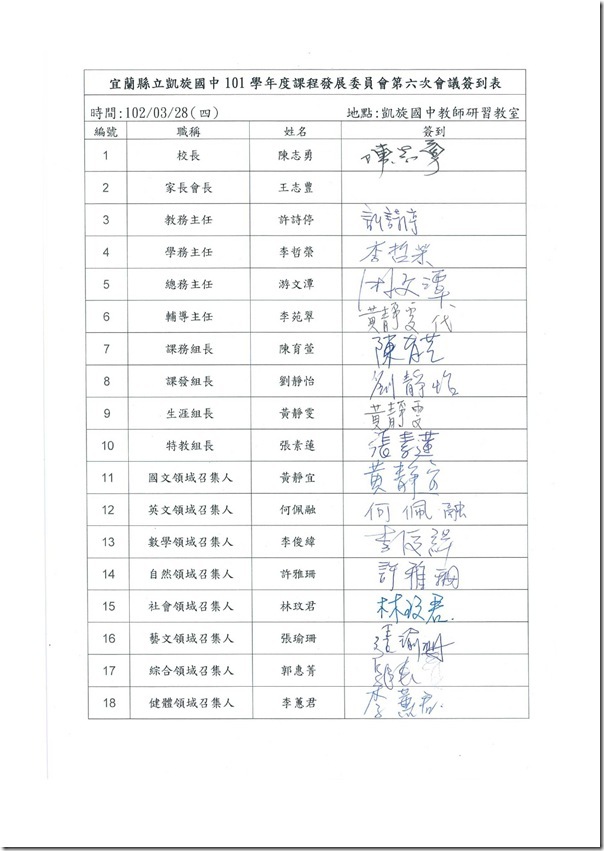 宜蘭縣立凱旋國中 101 學年度課程發展委員會第六次會議簽到表
時間:102/03/28(四) 地點:凱旋國中教師研習教室
編號 職稱 姓名 簽到
1 校長 陳志勇 陳志勇
2 家長會長 王志豐
3 教務主任 許詩停 許詩停
4 學務主任 李哲榮 李哲榮
5 總務主任 游文潭
6 輔導主任 李苑翠 黃靜雯代
7 課務組長 陳育萱 陳育萱
8 課發組長 劉靜怡 劉靜怡
9 生涯組長 黃靜雯 黃靜雯
10 特教組長 張素蓮 張素蓮
11 國文領域召集人 黃靜宜 黃靜宜
12 英文領域召集人 何佩融 何佩融
13 數學領域召集人 李俊緯 李俊緯
14 自然領域召集人 許雅珊 許雅珊
15 社會領域召集人 林玟君 林玟君.
16 藝文領域召集人 張瑜珊 張瑜珊
17 綜合領域召集人 郭惠菁
18 健體領域召集人 李蕙君 李蕙君